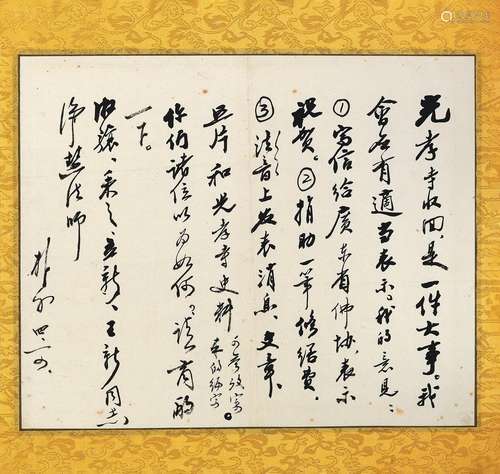 光孝寺收回，是一件大事。我
会应有适当表示。我的意见：
①写信给广东省佛协，表示
祝贺。②捐助一笔修缮费。
③法音上发表消息、文章、
照片和光孝寺史料
你们诸位以为如何？请商酌
一下。
、秉之、立新、王新同志
净慧法师
朴初 四、